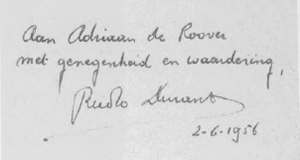 Aan Adriaan de Roover
met genegenheid en waardering,
Rudo Durant
2-6-1956